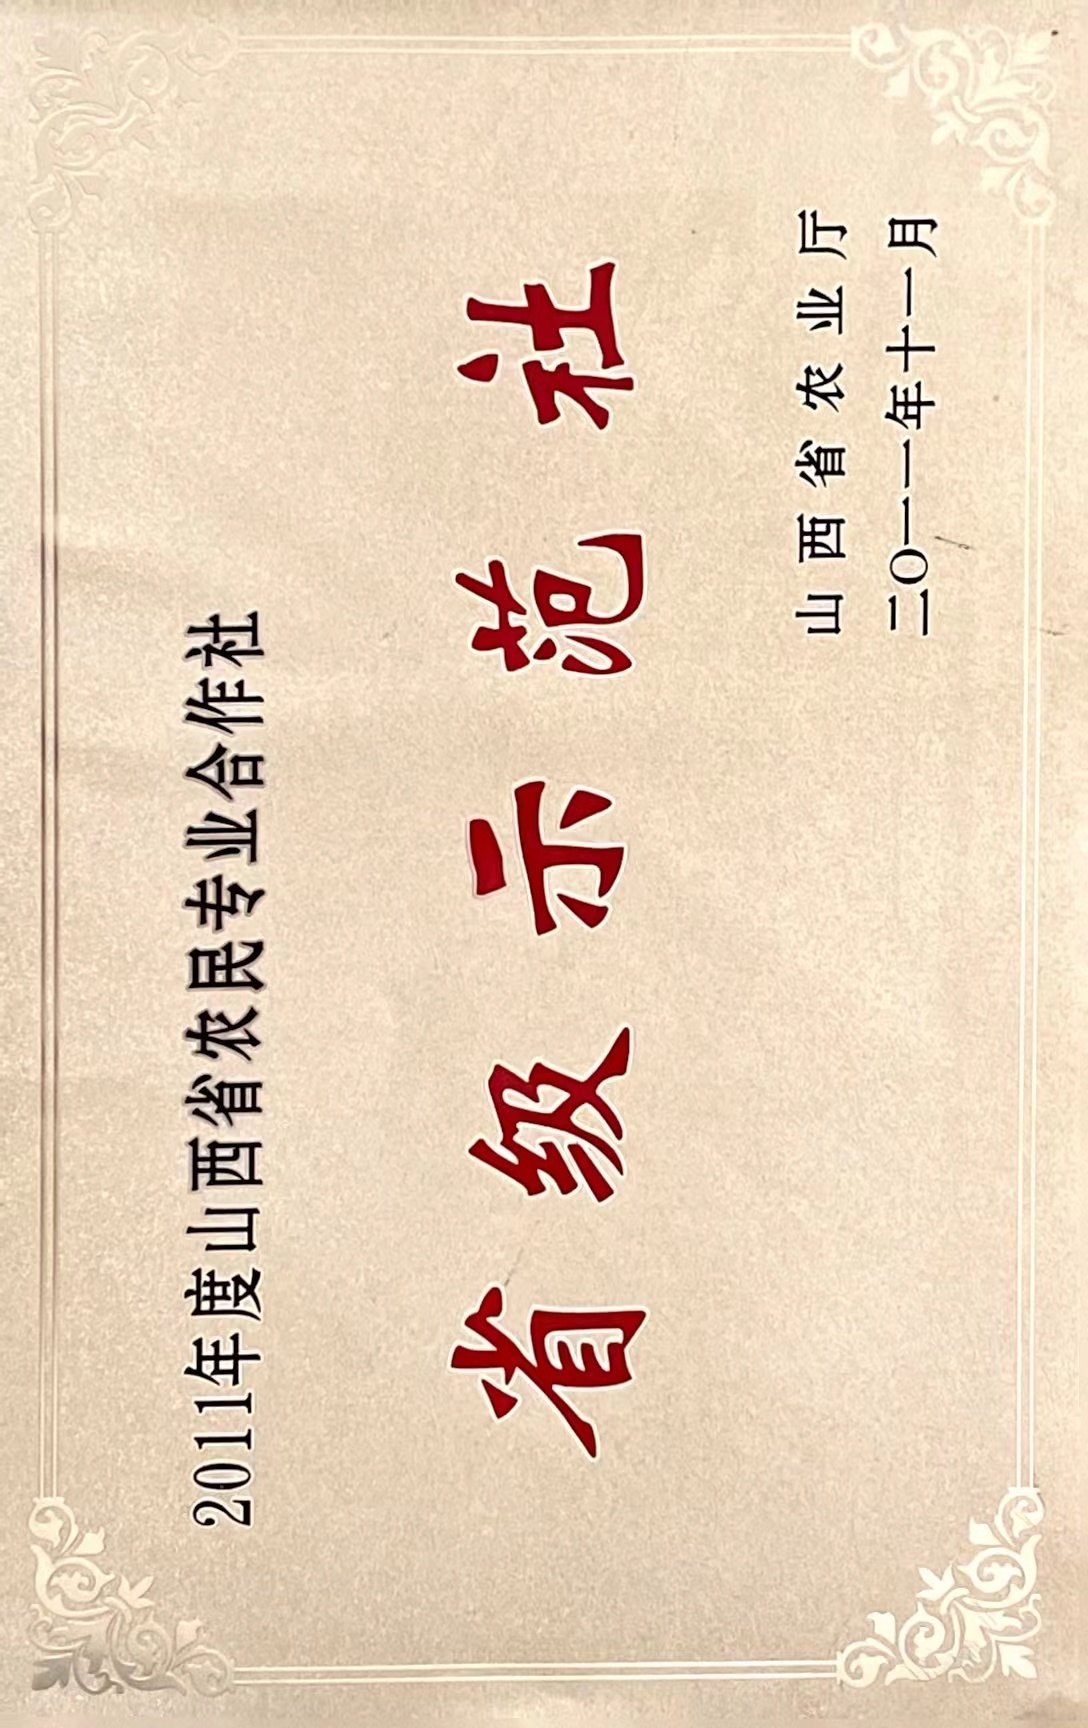 2011年度山西省农民专业合作社
省级示范社
山西省农业厅
二〇一一年十一月